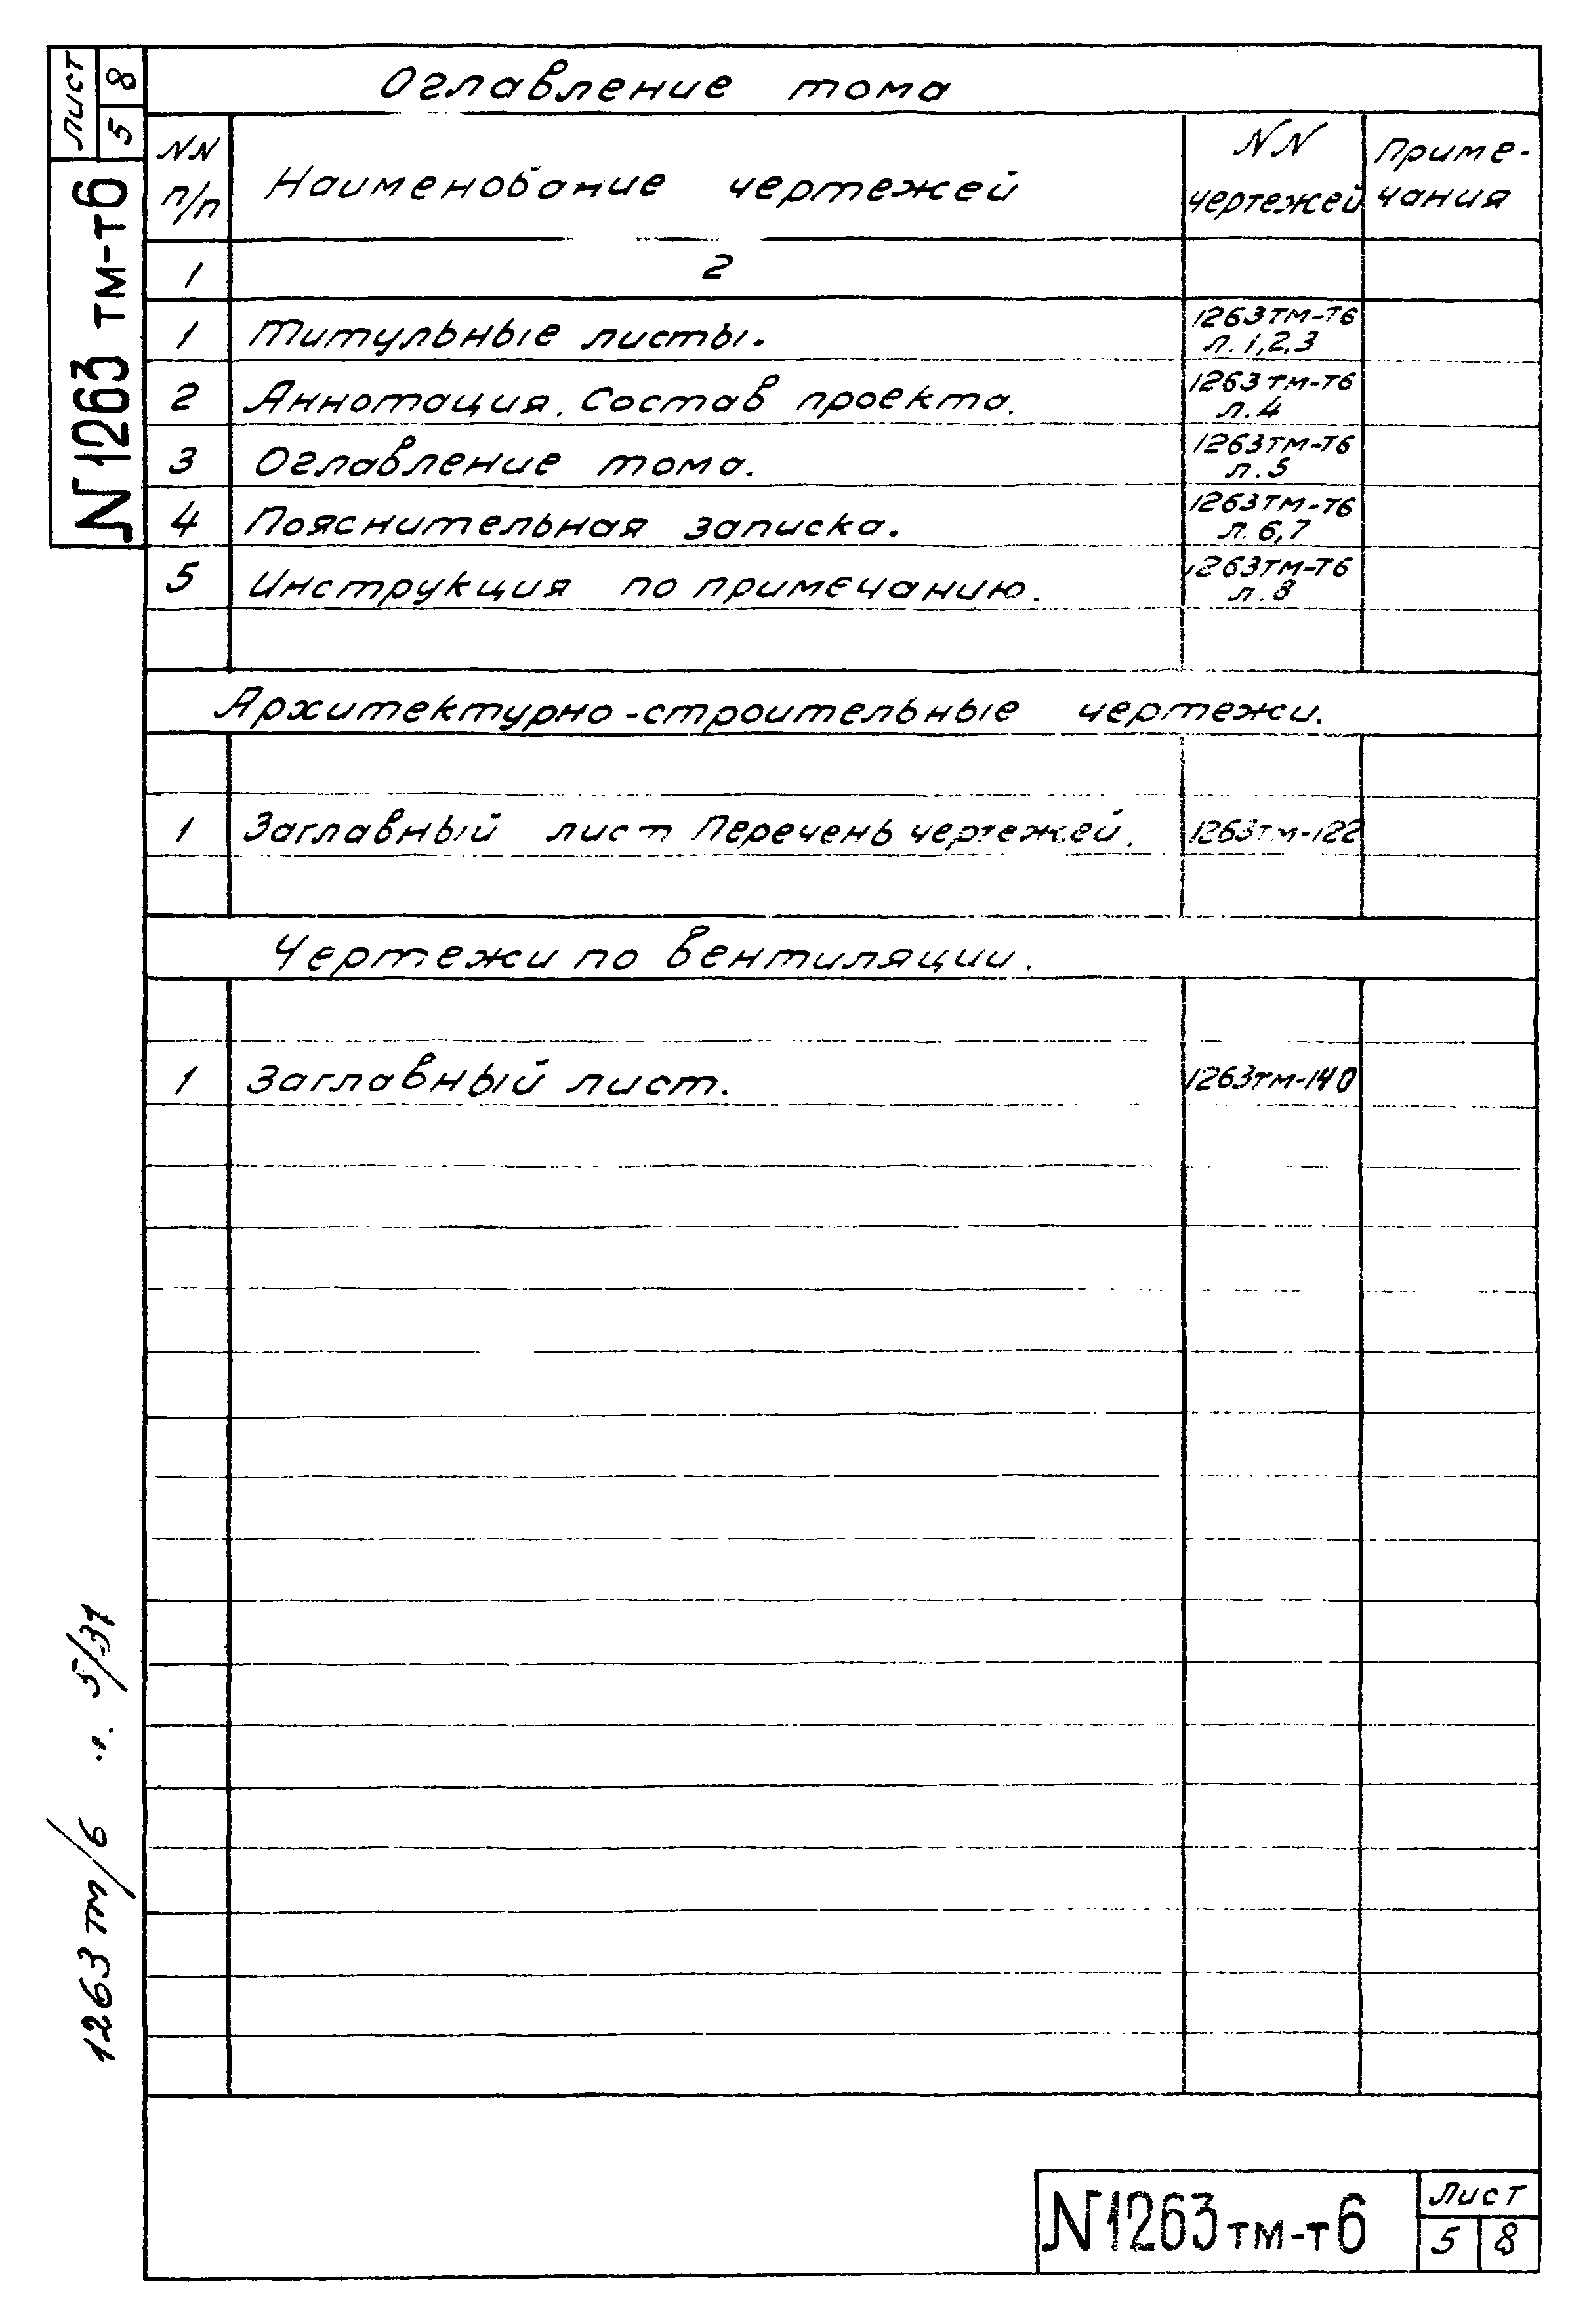 Лист
5 8
N1263 тм-т6
Оглавление тома
NN п/п
Наименование чертежей
NN чертежей
Приме-
чания
1 2
1 Титульные листы. 1263тм-т6
л. 1,2,3
2 Аннотация. Состав проекта. 1263тм-т6
л. 4
3 Оглавление тома. 1263тм-т6
л. 5
4 Пояснительная записка. 1263тм-т6
л. 6,7
5 Инструкция по примечанию. 1263тм-т6
л. 8
Архитектурно-строительные чертежи.
1 Заглавный лист Перечень чертежей. 1263тм-122
Чертежи по вентиляции.
1 Заглавный лист. 1263тм-140
1263тм/6 5/31
N1263тм-т6
Лист
5 8